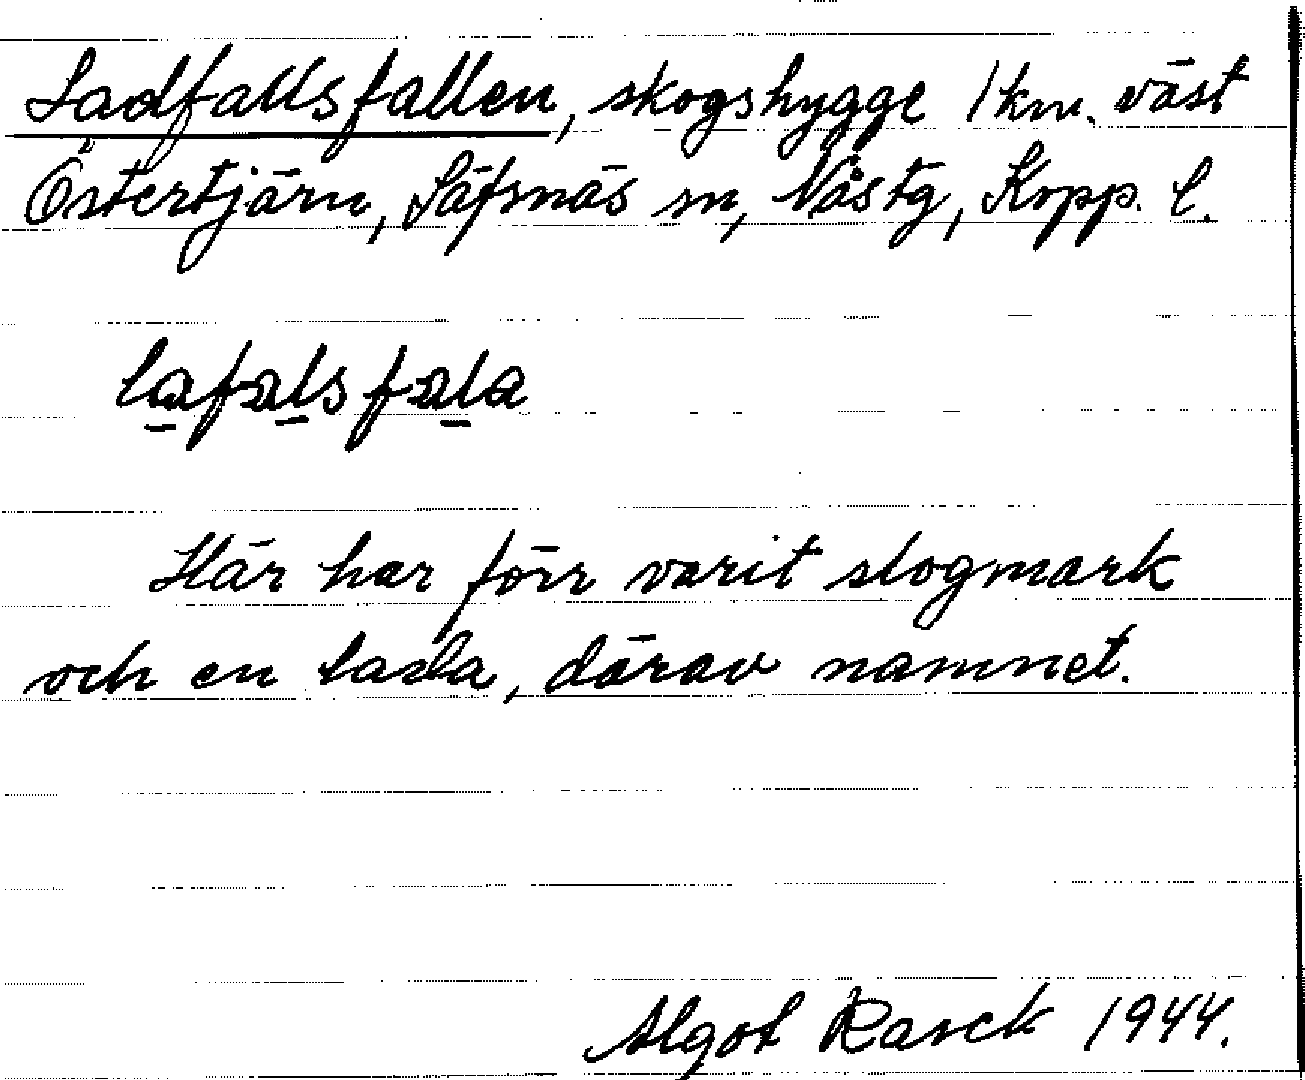 Ladfallsfallen, skogshygge 1 km. väst
Östertjärn, Säfsnäs sn, Nåstg, Kopp. l.
lafalsfala
Här har förr varit slogmark
och en lada, därav namnet.
Algot Rasck 1944.